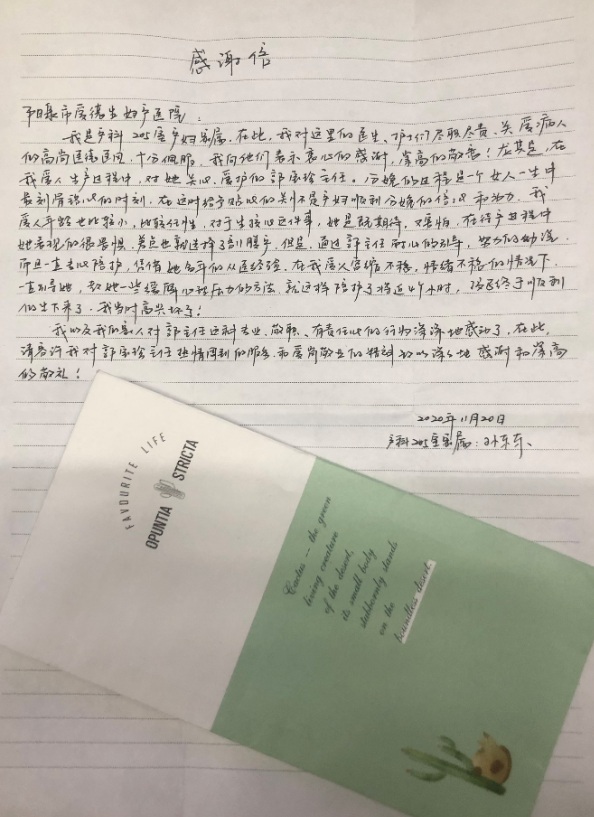 感谢信
阳泉市爱德生妇产医院：
我是产科205房产妇家属，在此，我对这里的医生、护士们尽职尽责、关爱病人
的高尚医德医风，十分佩服，我向他们表示衷心的感谢，崇高的敬意！尤其是，在
我爱人生产过程中，对她关心、爱护的郭宝珍主任。分娩的过程是一个女人一生中
最刻骨铭心的时刻，在这时给予贴心的关怀是产妇顺利分娩的信心和动力，我
爱人年龄也比较小，比较任性，对于生孩心这件事，她是既期待，又害怕，在待产过程中
她表现的很害怕，差点也就选择了剖腹手，但是，通过郭主任耐心的引导，努力的劝导，
而且一直专心陪护，凭借她多年的从医经验，在我爱人宫缩不稳，情绪不稳的情况下
一直引导她，教她一些缓解心理压力的方法，就这样陪护了将近4个小时，孩子终于顺利
的生下来了，我当时高兴坏了！
我以及我的家人对郭主任这种专业、敬职、有责任心的行为深深地感动了，在此，
请容许我对郭宝珍主任热情周到的服务和爱岗敬业的精神致以深深地感谢和崇高
的敬礼！
2020年11月20日
产科205室家属：孙东东、
FAVOURITE LIFE
OPUNTIA STRICTA
Cactus — the green
living creature
of the desert,
its small body
stubbornly stands
on the
boundless desert.